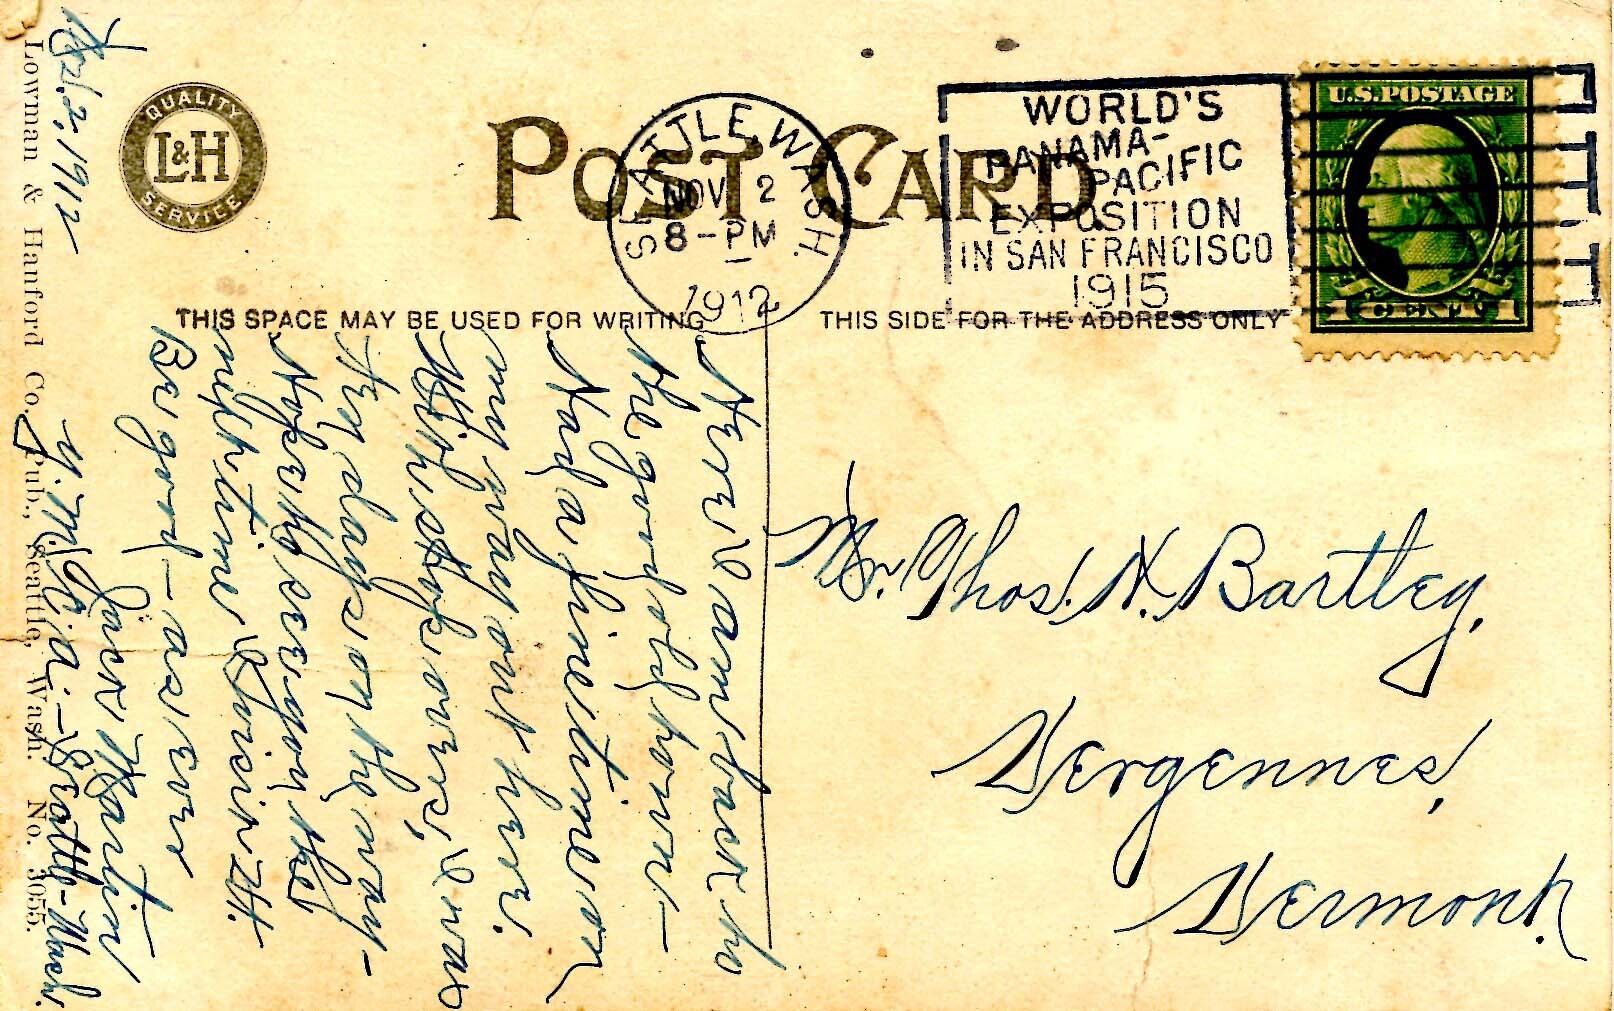 Nov. 2, 1912
Lowman & Hanford Co. Pub., Seattle, Wash. No. 3055.
QUALITY
L&H
SERVICE
POST CARD
SEATTLE, WASH.
NOV 2
8-PM
1912
WORLD'S
PANAMA-
PACIFIC
EXPOSITION
IN SAN FRANCISCO
1915
U.S. POSTAGE
1 CENT 1
THIS SPACE MAY BE USED FOR WRITING
THIS SIDE FOR THE ADDRESS ONLY
Here I am back to
the good old town—
Had a fine time on
my way out here.
With stop overs, I was
ten days on the way—
Hope to see you the
next time I visit Vt.
Be good—as ever
Jack Martin
Y.M.C.A.—Seattle-Wash.
Mr. Thos. H. Bartley,
Vergennes,
Vermont.